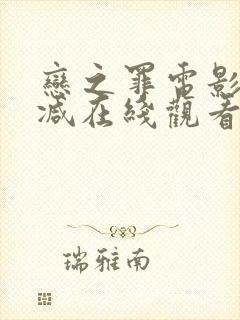 戀之罪電影
減在綫觀看
瑞雅南